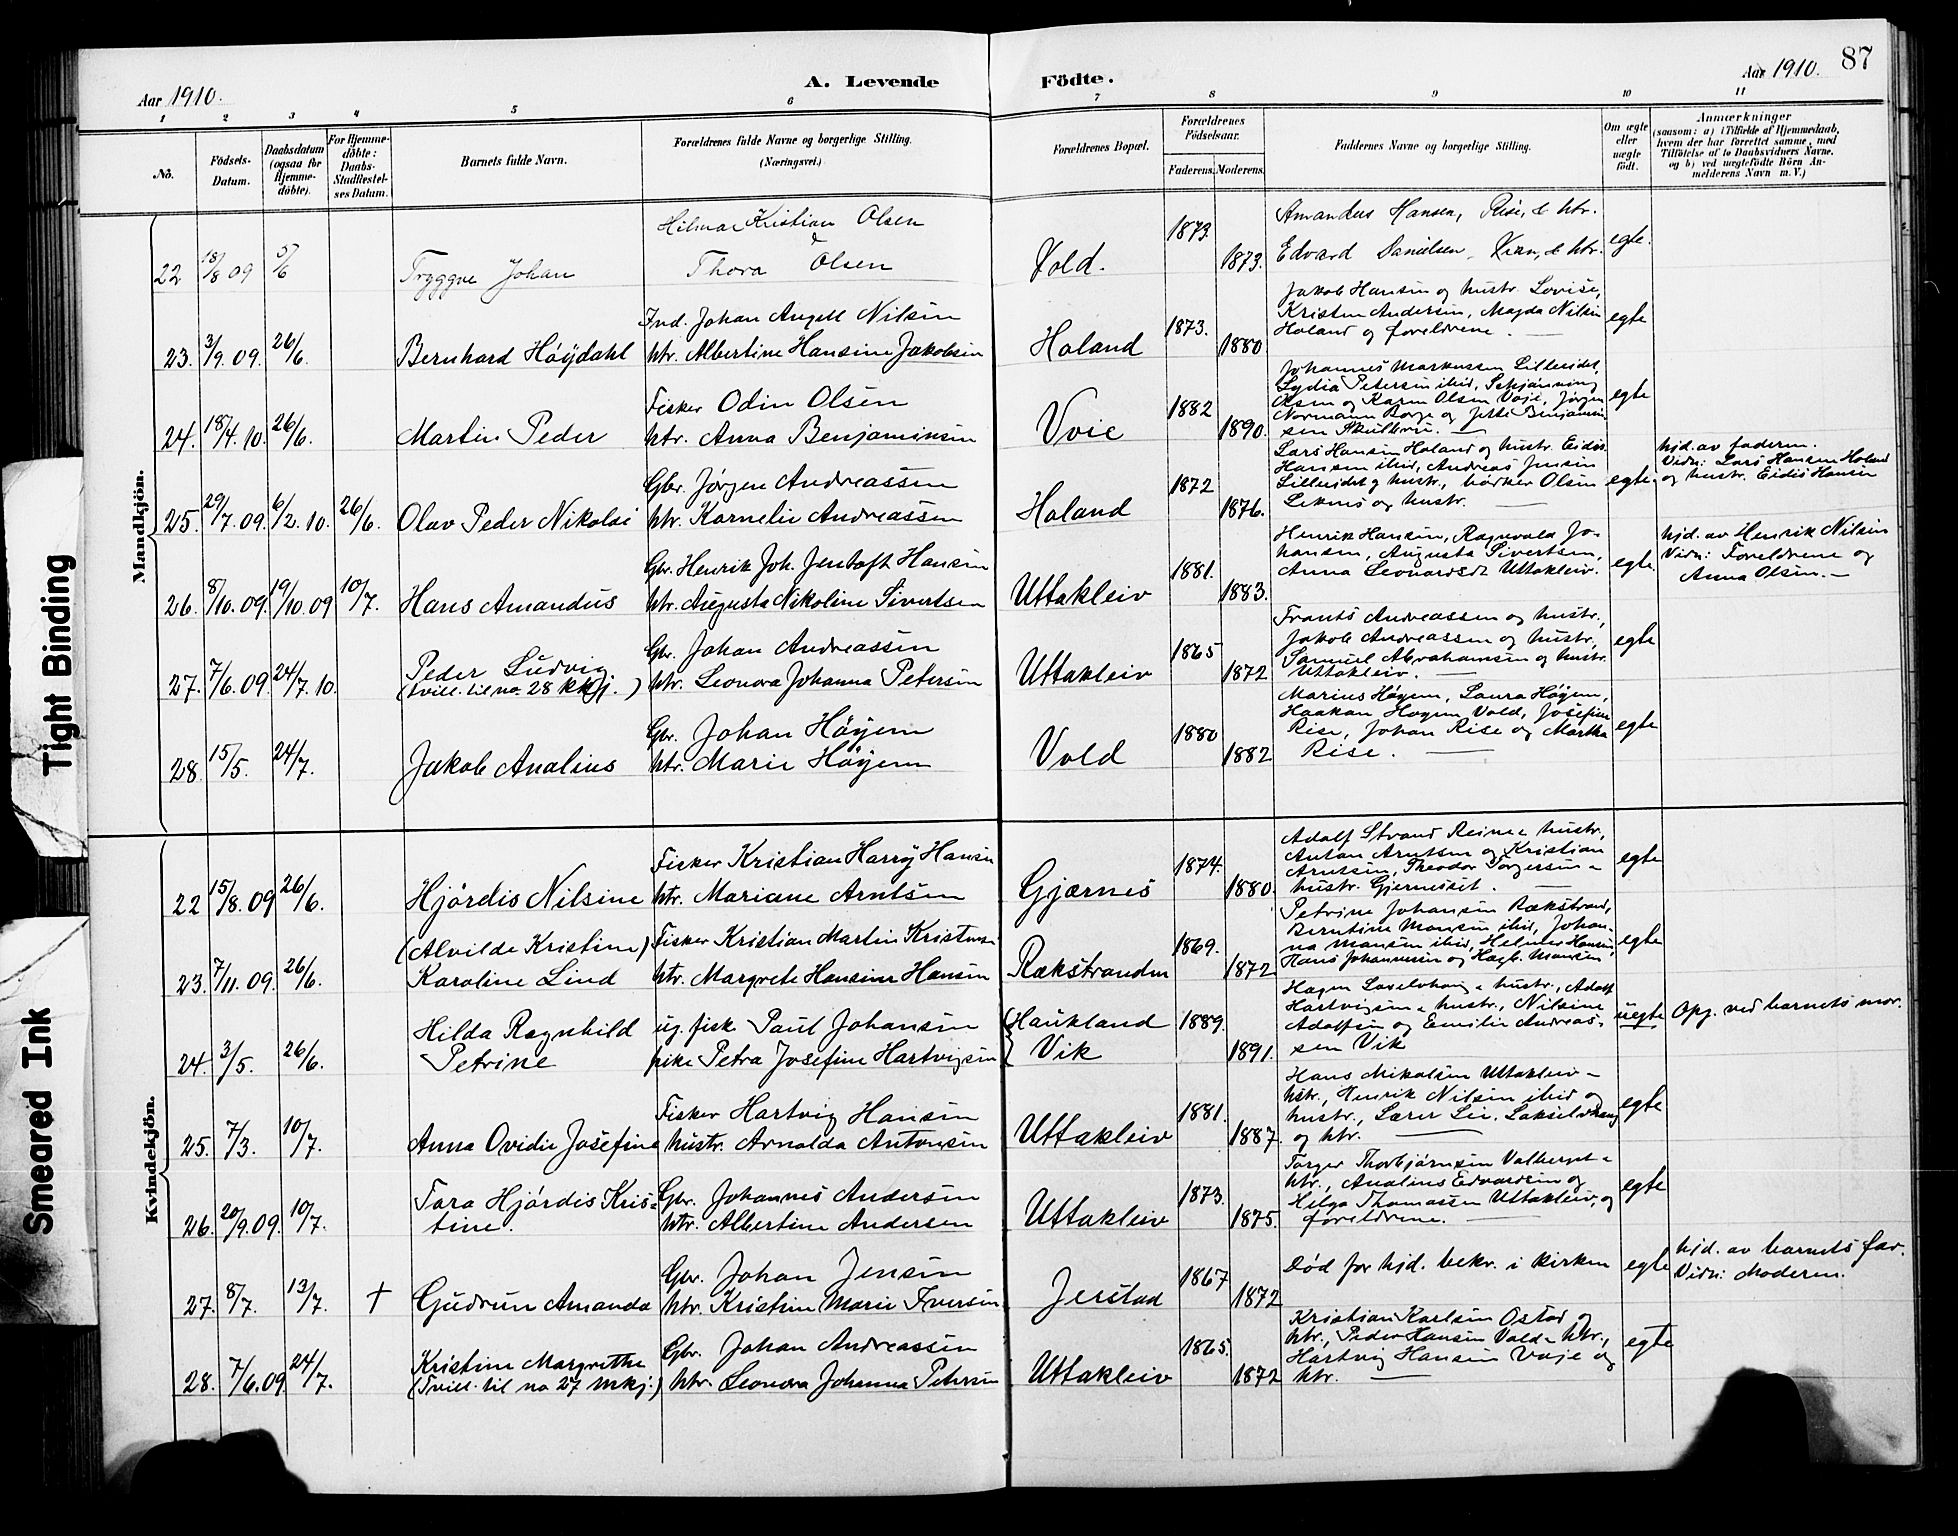 87
Aar 1910. A. Levende Födte. Aar 1910.
1 2 3 4 5 6 7 8 9 10 11
No.
Födsels-Datum.
Daabsdatum (ogsaa for Hjemme-döbte).
For Hjemme-döbte: Daabs-Stadfæstel-ses Datum.
Barnets fulde Navn.
Forældrenes fulde Navne og borgerlige Stilling. (Næringsvei.)
Forældrenes Bopæl.
Forældrenes Födselsaar.
Faderens. Moderens.
Faddernes Navne og borgerlige Stilling.
Om ægte eller uægte født.
Anmærkninger
(saasom: a) i Tilfælde af Hjemmedaab,
hvem der har forrettet samme, med
Tilföielse af to Daabsvidners Navne,
og b) ved uægtefödte Börn An-
melderens Navn m. V.)
Mandkjön.
22 18/8 09 5/6 Tryggve Johan
Hilmar Kristian Olsen
& Thora Olsen
Vold. 1873 1873.
Amandus Hansen, Rise, & htr.
Edvard Danielsen, & htr.
egte.
23. 3/9. 09. 26/6. Bernhard Høydahl
Ind. Johan Angell Nilsen
htr. Albertine Hansine Jakobsen
Holand 1873. 1880
Jakob Hansen og hustr. Lovise,
Kristen Andersen, Magda Nilsen
Holand og foreldrene.
egte
24. 18/4. 10. 26/6. Martin Peder
Fisker Odin Olsen
htr. Anna Benjaminsen
Voie 1882 1890.
Johannes Markussen Lilleeidet,
Lydia Petersen ibid, Schjønning
Olsen og Karen Olsen Voje, Jørgen
Normann Borge og Jette Benjamin-
sen
egte
25. 29/7. 09. 6/2. 10. 26/6. Olav Peder Nikolai
Gbr. Jørgen Andreassen
htr. Kornelie Andreassen
Holand 1872 1876.
Lars Hansen Holand og hustr. Eidis
Hansen ibid, Andreas Jensen
Lilleeidet og hustr., Olsen
Leknes og hustr.
egte.
hjd. av faderen.
Vidn: Lars Hansen Holand
og hustr. Eidis Hansen
26. 8/10. 09. 19/10. 09 10/7. Hans Amandus
Gbr. Henrik Joh. Jentoft Hansen
htr. Augusta Nikoline Sivertsen
Uttakleiv 1881. 1883.
Henrik Hansen, Ragnvald Jo-
hansen, Augusta Sivertsen,
Anna Leonardsdt Uttakleiv.
egte.
hjd. av Henrik Nilsen
Vidn: Foreldrene og
Anna Olsen.
27. 7/6. 09. 24/7. 10. Peder Ludvig
(tvill. til no 28 kkj.)
Gbr. Johan Andreassen
htr. Leonora Johanna Petersen
Uttakleiv 1865 1872
Frants Andreassen og hustr.,
Jakob Andreassen og hustr.,
Samuel Abrahamsen og hustr.
Uttakleiv.
egte
28. 15/5. 24/7. Jakob Analius
Gbr. Johan Høyem
htr. Marie Høyem
Vold 1880 1882
Marius Høyem, Laura Høyem,
Haakon Høyem Vold, Josefine
Rise, Johan Rise og Martha
Rise.
egte
Kvindekjön.
22 15/8. 09 26/6. Hjördis Nilsine
Fisker Kristian Harry Hansen
htr. Mariane Arntsen
Gjærnes 1874. 1880.
Adolf Strand Reine & hustr,
Anton Arntsen og Kristian
Arntsen, Theodor Torgersen &
hustr. Gjernesset.
egte
23. 7/11. 09. 26/6. (Alvilde Kristine)
Karoline Lind
Fisker Kristian Martin Kristensen
htr. Margrete Hansine Hansen
Rækstranden 1869. 1872
Petrine Johansen Rækstrand,
Berntine Monsen ibid, Johan-
na Monsen ibid, Helmer Hansen,
Hans Johannesen og Hagb. Monsen
egte
24. 3/5. 26/6. Hilda Ragnhild
Petrine
ug. fisk. Paul Johansen
pike Petra Josefine Hartvigsen
Haukland
Vik 1889. 1891.
Hagen & hustr., Adolf
Hartvigsen & hustr., Nilsine
Adolfsen og Emilie Andreas-
sen Vik
uegte
Opg. ved barnets mor.
25. 7/3. 10/7. Anna Ovidie Josefine
Fisker Hartvig Hansen
hustr. Arnolda Antonsen
Uttakleiv 1881. 1887.
Hans Mikalsen Uttakleiv &
hstr., Henrik Nilsen ibid og
hustr., Lærer Lie,
og htr.
egte
26. 20/9. 09. 10/7. Tora Hjördis Kris-
tine.
Gbr. Johannes Andersen
htr. Albertine Andersen
Uttakleiv 1873. 1875.
Torger Thorbjørnsen Valberget &
htr., Analius Edvardsen og
Helga Thomassen Uttakleiv, og
foreldrene.
egte
27. 8/7. 13/7. + Gudrun Amanda
Gbr. Johan Jensen
htr. Kristine Marie Iversen
Jerstad 1867 1872
Död før hjd. bekr. i kirken
egte
hjd. av barnets far.
Vidn: Moderen.
28. 7/6. 09 24/7. Kristine Margrethe
(Tvill. til no 27 mkj.)
Gbr. Johan Andreassen
htr. Leonora Johanna Petersen
Uttakleiv 1865. 1872
Kristian Karlsen Ostad og
htr., Peder Hansen Vold & htr.,
Hartvig Hansen Voje og
htr.
egte
Tight Binding
Smeared Ink